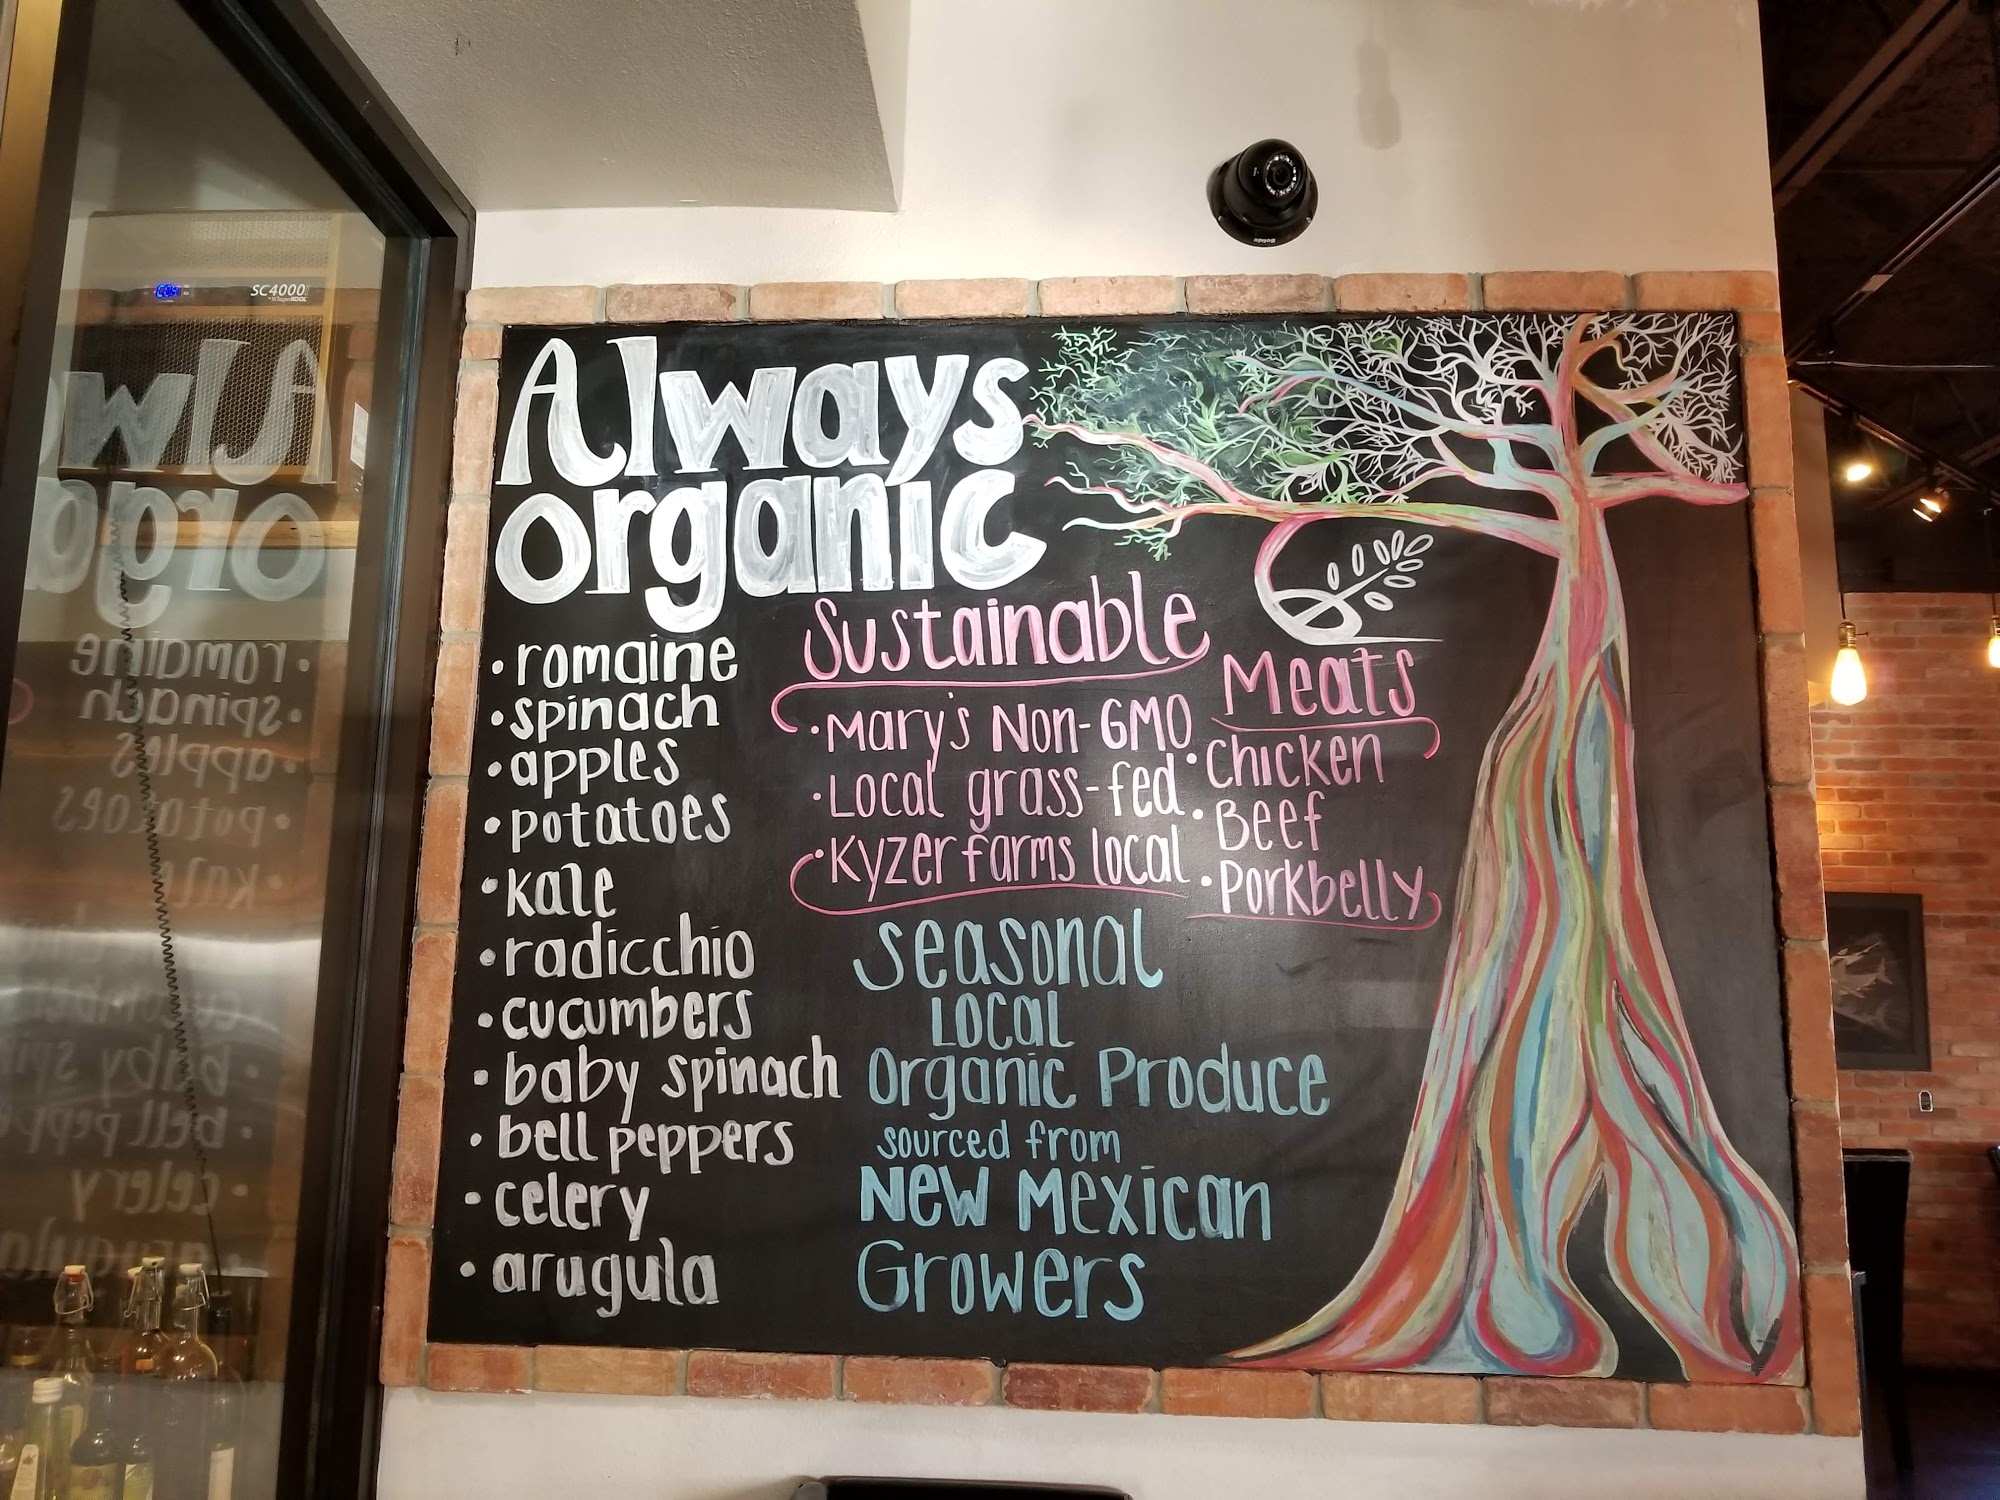 SC4000
by WhisperKOOL
Always
organic
• romaine
• spinach
• apples
• potatoes
• kale
• radicchio
• cucumbers
• baby spinach
• bell peppers
• celery
• arugula
Sustainable Meats
• Mary's Non-GMO • Chicken
• Local grass-fed • Beef
• Kyzer farms local • Porkbelly
Seasonal
Local
Organic Produce
sourced from
New Mexican
Growers